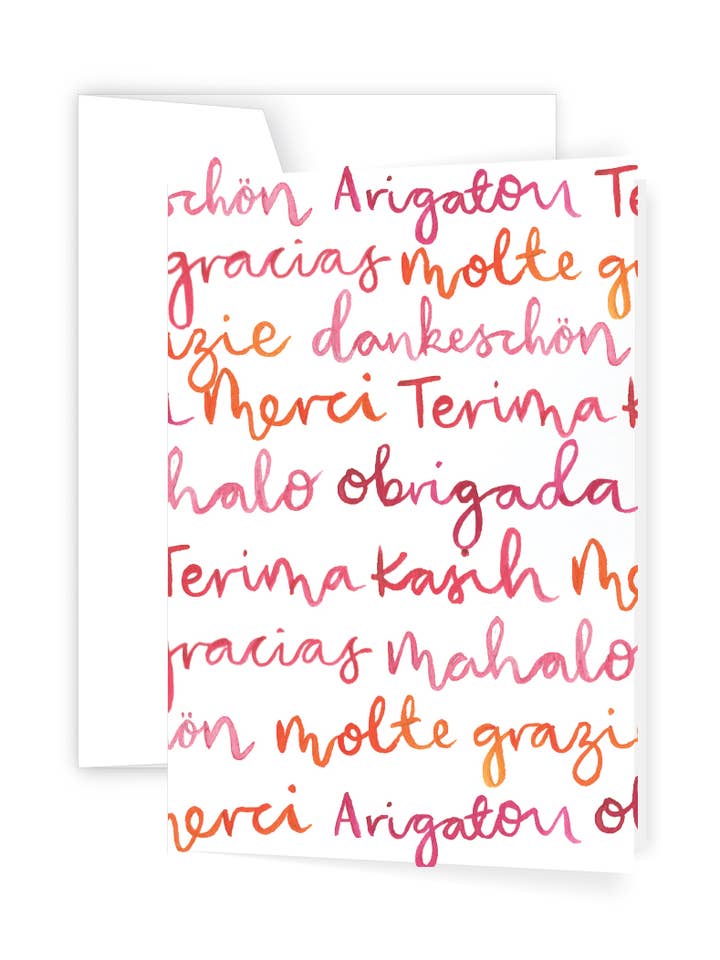 schön Arigatou Te
gracias molte g
zie dankeschön
Merci Terima K
halo obrigada
Terima Kasih Me
gracias mahalo
ön molte grazi
merci Arigatou ob